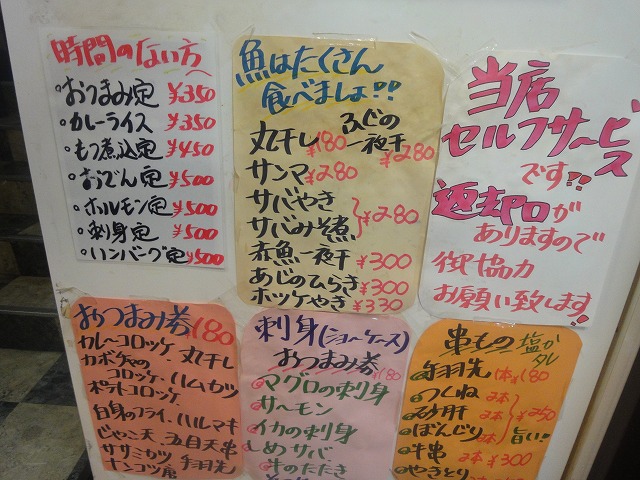 時間のない方へ
おつまみ定 ¥350
カレーライス ¥350
もつ煮込定 ¥450
おでん定 ¥500
ホルモン定 ¥500
刺身定 ¥500
ハンバーグ定 ¥500
魚はたくさん
食べましょ!!
丸干し ¥180
あじの
一夜干 ¥280
サンマ ¥280
サバやき
サバみそ煮
}¥280
赤魚一夜干 ¥300
あじのひらき ¥300
ホッケやき ¥330
当店
セルフサービス
です!!
返却口が
ありますので
御協力
お願い致します!
おつまみ券 ¥180
カレーコロッケ、丸干し
カボチャの
コロッケ、ハムカツ
ポテトコロッケ、
白身のフライ、ハルマキ
じゃこ天、五目天串
ササミカツ、手羽先
ナンコツ
刺身(ショーケース)
おつまみ券 ¥180
マグロの刺身
サーモン
イカの刺身
しめサバ
牛のたたき
串もの 塩かタレ
手羽先 1本 ¥180
つくね 2本
砂肝 2本
ぼんじり 2本
}¥250
旨い!
牛串 2本 ¥300
やきとり